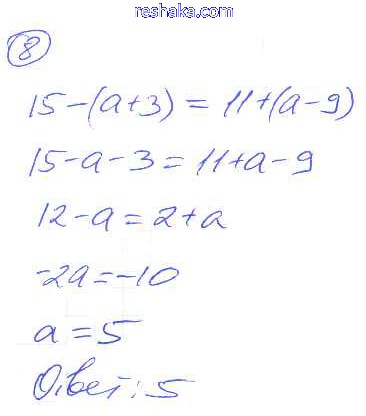 reshaka.com
8
15-(a+3) = 11+(a-9)
15-a-3=11+a-9
12-a=2+a
-2a=-10
a=5
Ответ: 5